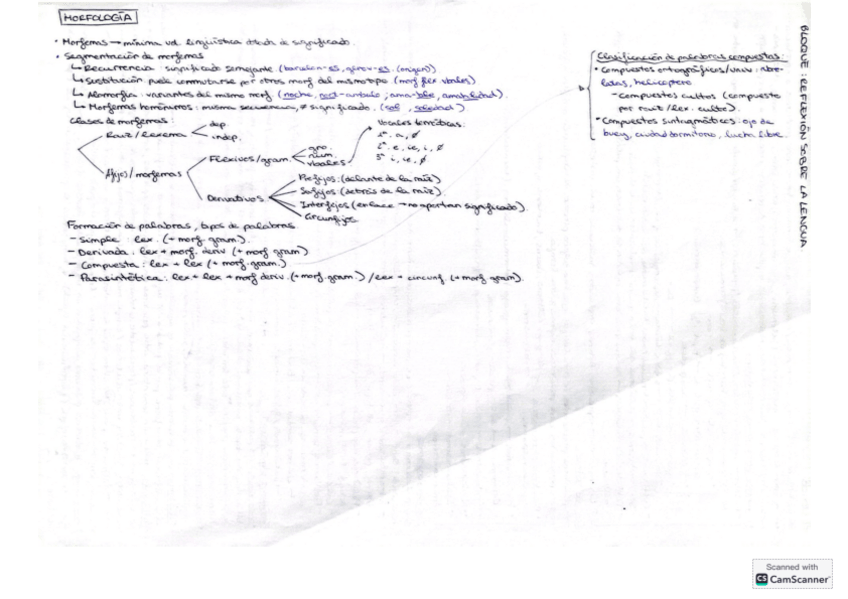 MORFOLOGÍA
• Morfemas → mínima ud. lingüística dotada de significado.
• Segmentación de morfemas
↳ Recurrencia : significado semejante (barcelon-és, genov-és. (origen)
↳ Sustitución puede conmutarse por otros morf del mismo tipo (morf flex vbales)
↳ Alomorfia : variantes del mismo morf (noche, noct-ámbulo ; ama-ble, amabilidad).
↳ Morfemas homónimos : misma secuencia, ≠ significado. (sol, soledad)
Clases de morfemas :
Raíz / Lexema
dep.
indep.
Afijos / morfemas
Flexivos / gram.
gro.
núm.
vbales
Vocales temáticas.
1ª. a, ø
2ª. e, ie, i, ø
3ª i, ie, ø
Derivativos
Prefijos : (delante de la raíz)
Sufijos (detrás de la raíz)
Interfijos (enlace → no aportan significado).
Circunfijos
Formación de palabras, tipos de palabras
- Simple : lex. (+ morf. gram.).
- Derivada : lex + morf. deriv (+ morf. gram)
- Compuesta : lex + lex (+ morf. gram.)
- Parasintética : lex + lex + morf deriv. (+ morf. gram.) / lex + circunf. (+ morf gram).
Clasificación de palabras compuestas.
• Compuestos ortográficos / univ. : abre-
latas, helicóptero
- Compuestos cultos (compuesto
por raíz / lex. culto).
• Compuestos sintagmáticos : ojo de
buey, ciudad dormitorio, lucha libre.
BLOQUE : REFLEXIÓN SOBRE LA LENGUA
Scanned with
CS CamScanner